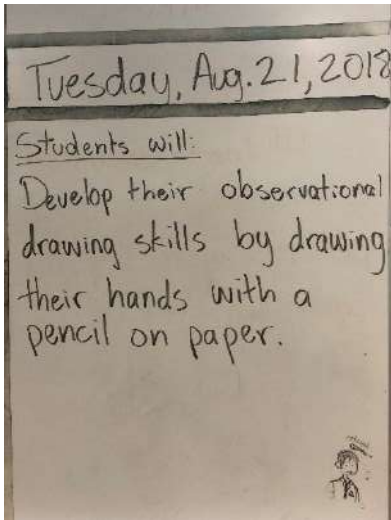 Tuesday, Aug. 21, 2018
Students will:
Develop their observational
drawing skills by drawing
their hands with a
pencil on paper.